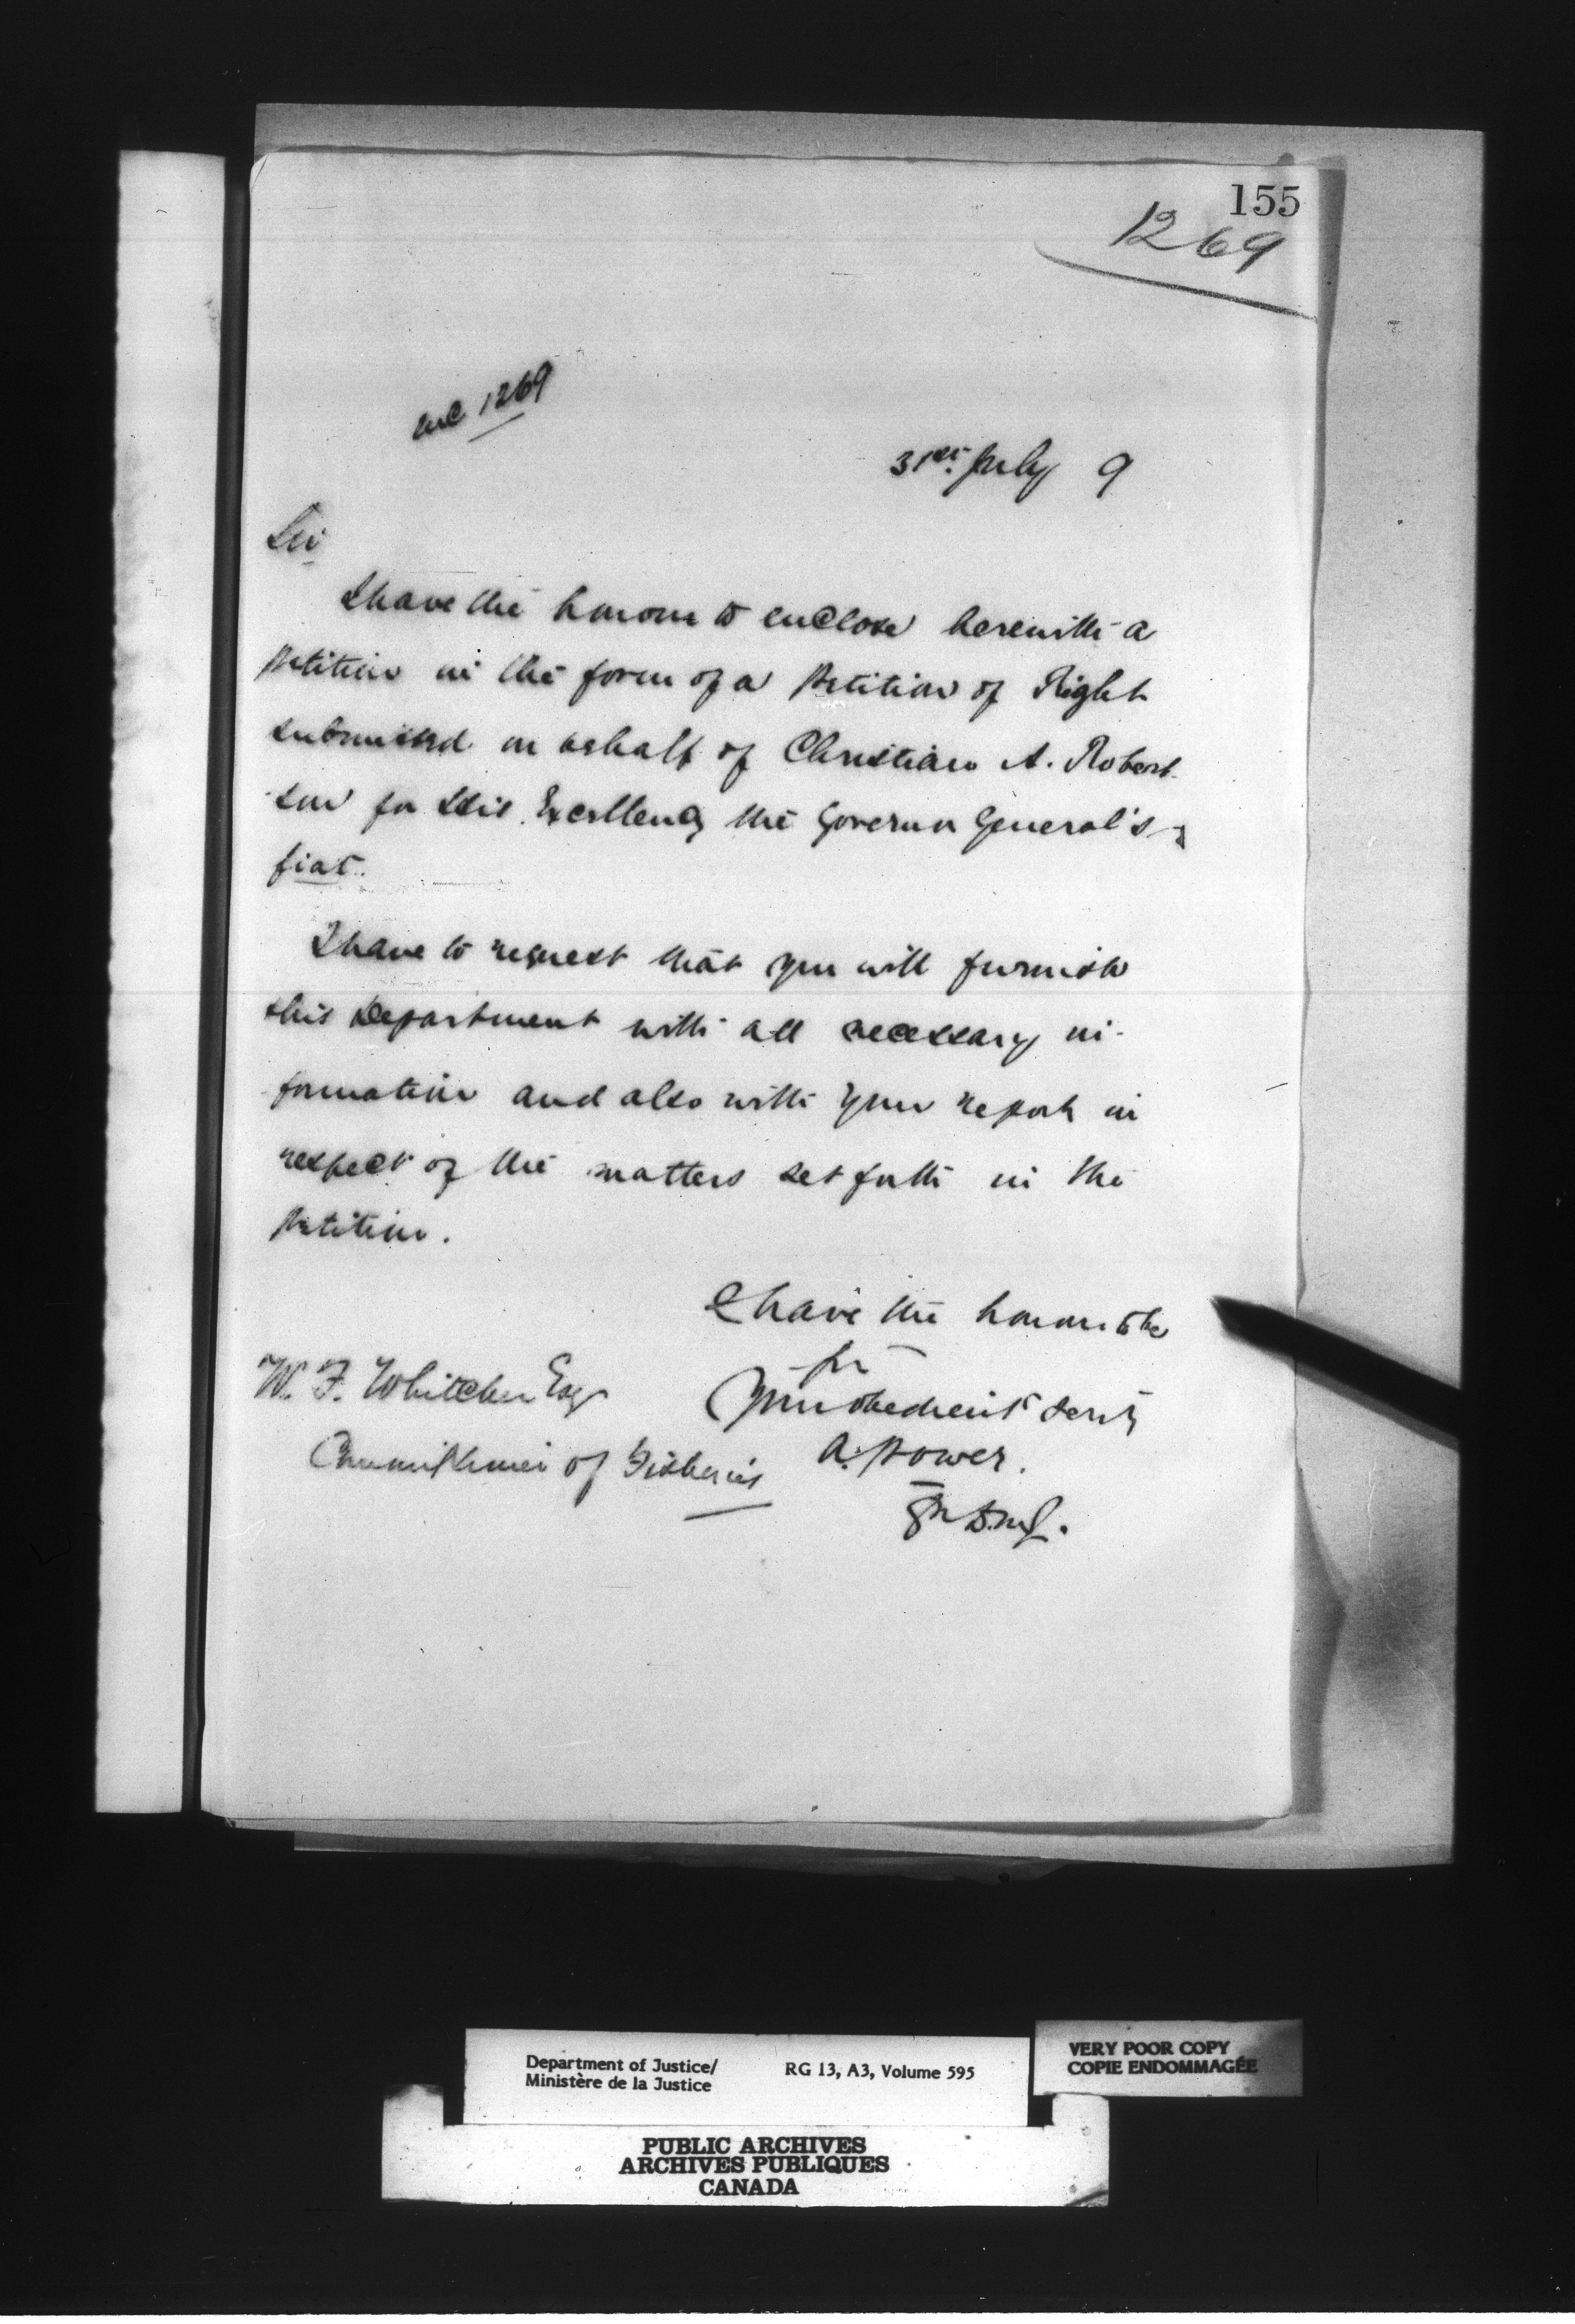 155
1269
Enc 1269
31st. July 9
Sir
I have the honour to enclose herewith a
petition in the form of a Petition of Right
submitted on behalf of Christian A. Robert-
son for His Excellency the Governor General's
fiat.
I have to request that you will furnish
this Department with all necessary in-
formation and also with your report in
respect of the matters set forth in the
Petition.
I have the honour to be
Sir
Your obedient Servt
A. Power.
for D.M.J.
W. F. Whitcher Esqr
Commissioner of Fisheries
Department of Justice/
Ministère de la Justice
RG 13, A3, Volume 595
VERY POOR COPY
COPIE ENDOMMAGÉE
PUBLIC ARCHIVES
ARCHIVES PUBLIQUES
CANADA